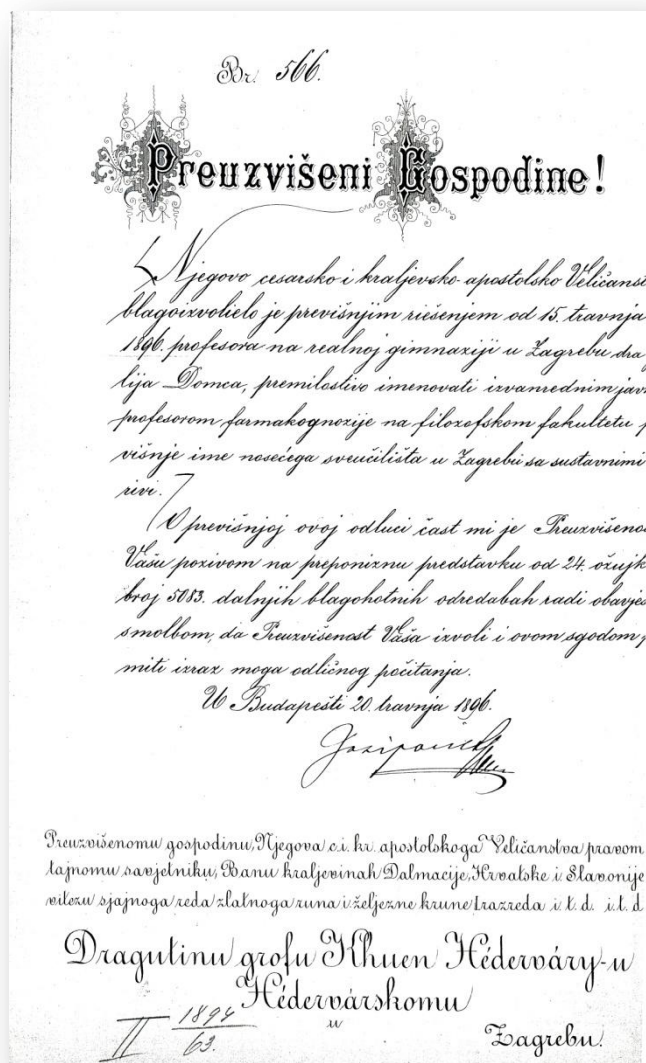 Br. 566.
Preuzvišeni Gospodine!
Njegovo cesarsko i kraljevsko apostolsko Veličanst
blagoizvolielo je previšnjim riešenjem od 15. travnja
1896. profesora na realnoj gimnaziji u Zagrebu dra
lija Domca, premilostivo imenovati izvanrednim jav
profesorom farmakognozije na filozofskom fakultetu p
višnje ime nosećega sveučilišta u Zagrebu sa sustavnimi
rivi.
O previšnjoj ovoj odluci čast mi je Preuzvišenos
Vašu pozivom na preponiznu predstavku od 24. ožujk
broj 5083. dalnjih blagohotnih odredabah radi obavjes
smolbom, da Preuzvišenost Vaša izvoli i ovom sgodom p
miti izraz moga odličnog počitanja.
U Budapešti 20. travnja 1896.
Josipović
Preuzvišenomu gospodinu, Njegova c. i. kr. apostolskoga Veličanstva pravom
tajnomu savjetniku, Banu kraljevinah Dalmacije, Hrvatske i Slavonije
vitezu sjajnoga reda zlatnoga runa i željezne krune I. razreda i. t. d. i. t. d
Dragutinu grofu Khuen Héderváry-u
Hédervárskomu
u
II 1894
63.
Zagrebu.